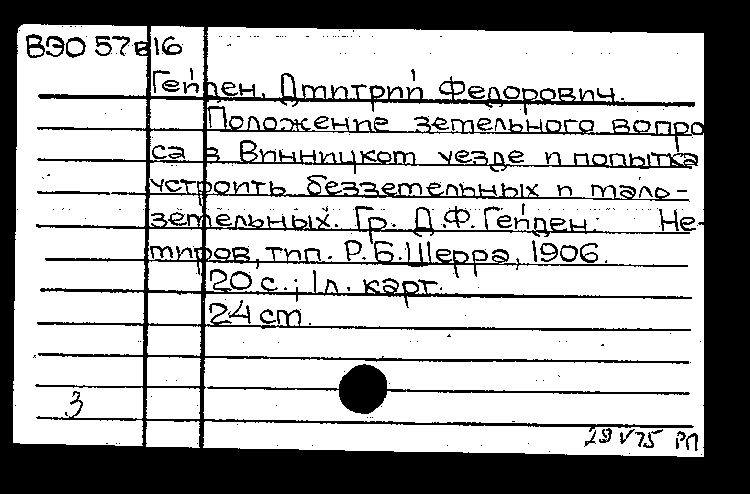 ВЭО 57в16
Гейден, Дмитрий Федорович.
Положение земельного вопро
са в Винницком уезде и попытка
устроить безземельных и мало-
земельных. Гр. Д.Ф. Гейден. Не-
миров, тип. Р.Б. Шерра, 1906.
20 с.; 1 л. карт.
24 см.
3
29 V 75 РП